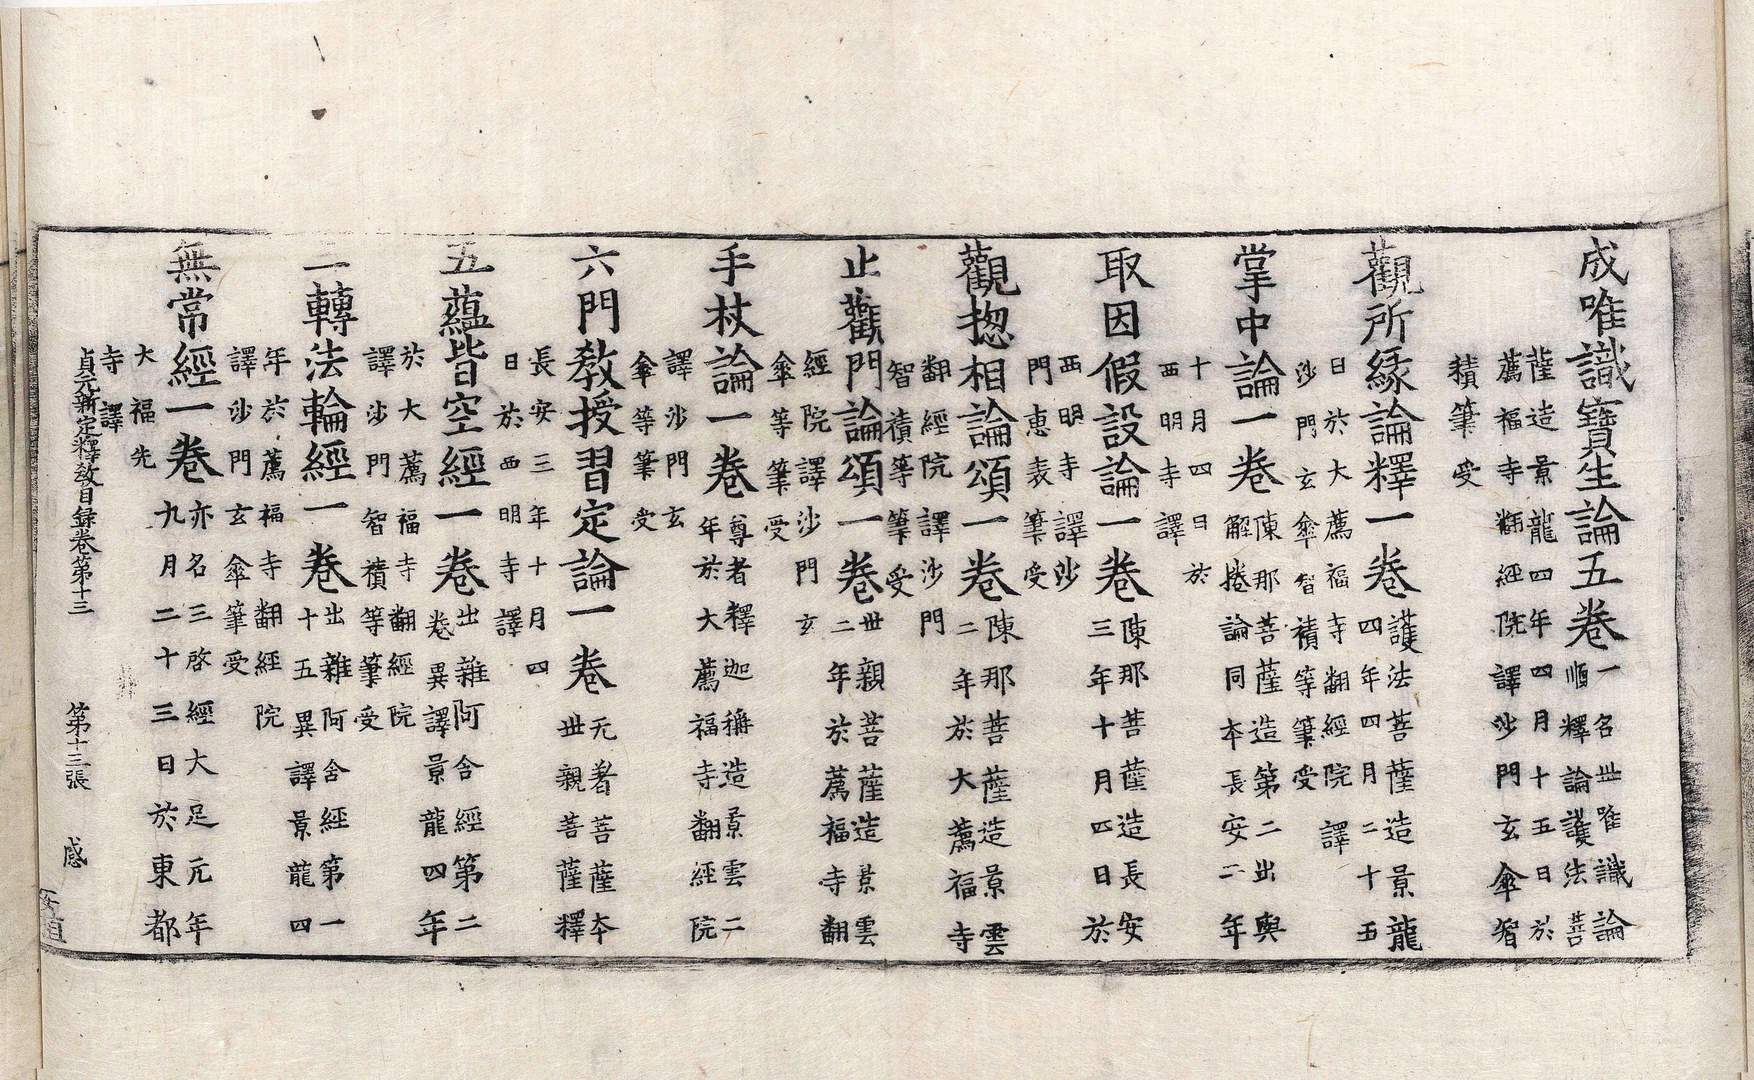 成唯識寶生論五卷
一名丗唯識論
順釋論護法菩
薩造景龍四年四月十五日於
薦福寺翻經院譯沙門玄傘智
積筆受
觀所緣論釋一卷
護法菩薩造景龍
四年四月二十五
日於大薦福寺翻經院譯
沙門玄傘智積等筆受
掌中論一卷
陳那菩薩造第二出與
解捲論同本長安二年
十月四日於
西明寺譯
取因假設論一卷
陳那菩薩造長安
三年十月四日於
西明寺譯沙
門惠表筆受
觀揔相論頌一卷
陳那菩薩造景雲
二年於大薦福寺
翻經院譯沙門
智積等筆受
止觀門論頌一卷
丗親菩薩造景雲
二年於薦福寺翻
經院譯沙門玄
傘等筆受
手杖論一卷
尊者釋迦稱造景雲二
年於大薦福寺翻經院
譯沙門玄
傘等筆受
六門教授習定論一卷
无著菩薩本
丗親菩薩釋
長安三年十月四
日於西明寺譯
五蘊皆空經一卷
出雜阿含經第二
卷異譯景龍四年
於大薦福寺翻經院
譯沙門智積等筆受
三轉法輪經一卷
出雜阿含經第一
十五異譯景龍四
年於薦福寺翻經院
譯沙門玄傘筆受
無常經一卷
亦名三啓經大足元年
九月二十三日於東都
大福先
寺譯
貞元新定釋教目録卷第十三 第十三張 感